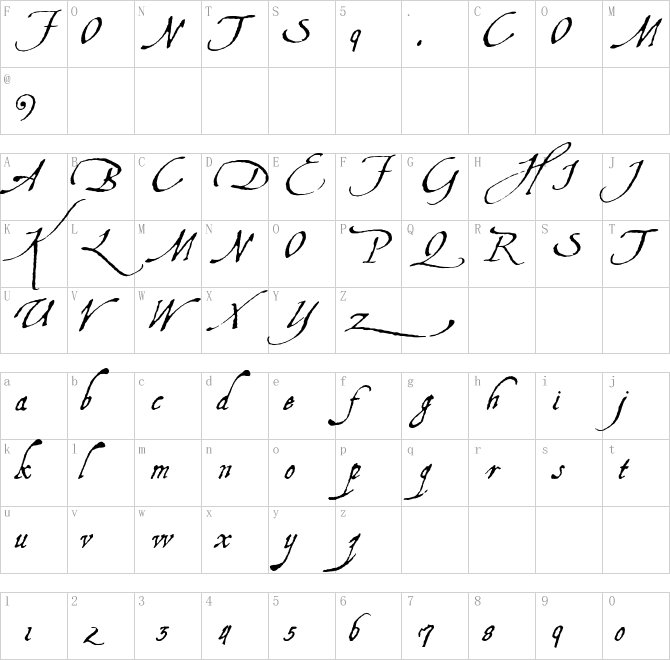 F O N T S 5 . C O M
F O N T S 9 . C O M
@
A B C D E F G H I J
A B C D E F G H I J
K L M N O P Q R S T
K L M N O P Q R S T
U V W X Y Z
U V W X Y Z
a b c d e f g h i j
a b c d e f g h i j
k l m n o p q r s t
k l m n o p q r s t
u v w x y z
u v w x y z
1 2 3 4 5 6 7 8 9 0
1 2 3 4 5 6 7 8 9 0